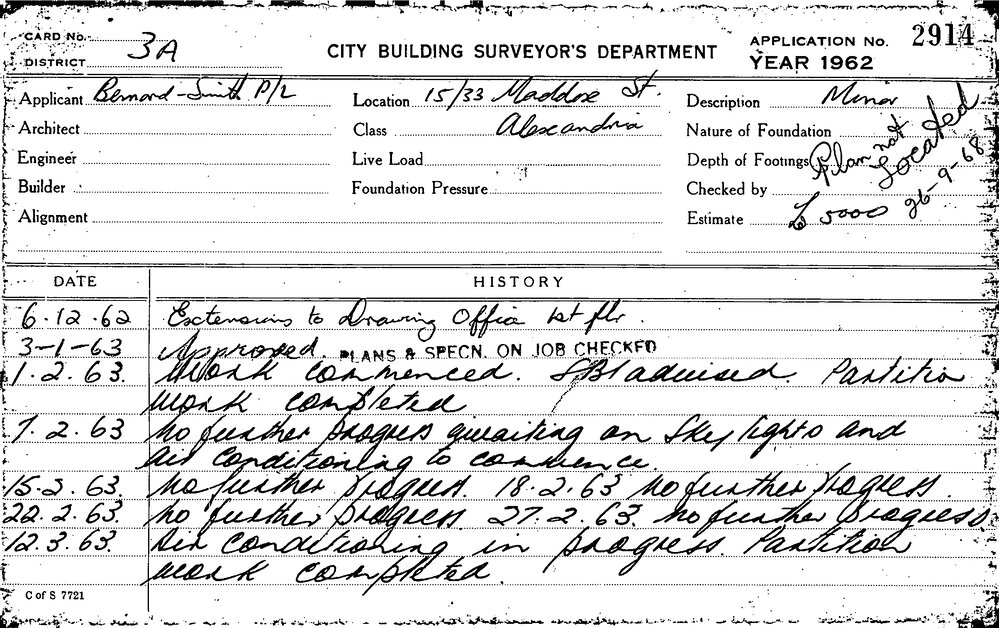 CARD No.
DISTRICT 3A
CITY BUILDING SURVEYOR'S DEPARTMENT
APPLICATION No. 2914
YEAR 1962
Applicant Bernard-Smith P/L
Location 15/33 Maddox St.
Description Minor
Architect
Class Alexandria
Nature of Foundation
Engineer
Live Load
Depth of Footings
Plan not Located 26-9-68
Builder
Foundation Pressure
Checked by
Alignment
Estimate £5000
DATE HISTORY
6.12.62 Extensions to Drawing Office 1st flr.
3-1-63 Approved. PLANS & SPECN. ON JOB CHECKED
1.2.63. Work commenced. SBI advised. Partition
work completed
7.2.63 No further progress awaiting on Sky lights and
air conditioning to commence.
15.2.63 No further progress. 18.2.63 No further progress.
22.2.63. No further progress 27.2.63. No further progress.
12.3.63. Air conditioning in progress. Partition
work completed.
C of S 7721